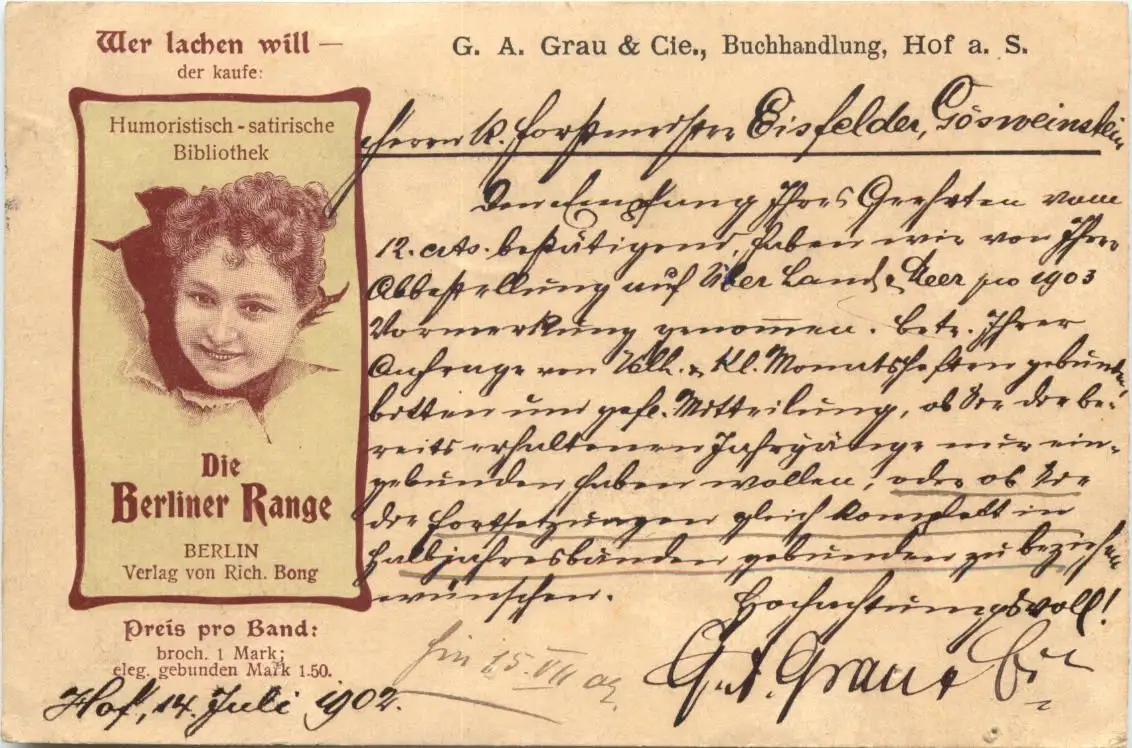 Wer lachen will —
der kaufe:
Humoristisch-satirische
Bibliothek
Die
Berliner Range
BERLIN
Verlag von Rich. Bong
Preis pro Band:
broch. 1 Mark;
eleg. gebunden Mark 1.50.
Hof, 14. Juli 1902.
G. A. Grau & Cie., Buchhandlung, Hof a. S.
Herrn k. Forstmeister Eisfelder, Gösweinstein
Den Empfang Ihres Geehrten vom
12. crts. bestätigend, haben wir von Ihrer
Abbestellung auf Über Land & Meer pro 1903
Vormerkung genommen. Betr. Ihrer
Anfrage von Velh. & Kl. Monatsheften gebunden
bitten um gefl. Mitteilung, ob Sie die be-
reits erhaltenen Jahrgänge nur ein-
gebunden haben wollen, oder ob Sie
die Fortsetzungen gleich komplett in
Halbjahresbänden gebunden zu beziehen
wünschen. Hochachtungsvoll!
G. A. Grau & Cie
15. VII 02